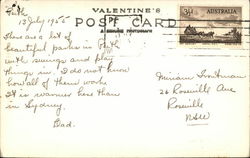 VALENTINE'S
POST CARD
A GENUINE PHOTOGRAPH
3½D AUSTRALIA
Perth
13 July 1955
There are a lot of
beautiful parks in Perth
with swings and play
things in. I do not know
how all of them work
It is warmer here than
in Sydney.
Dad.
Miriam
26 Roseville Ave
Roseville
NSW